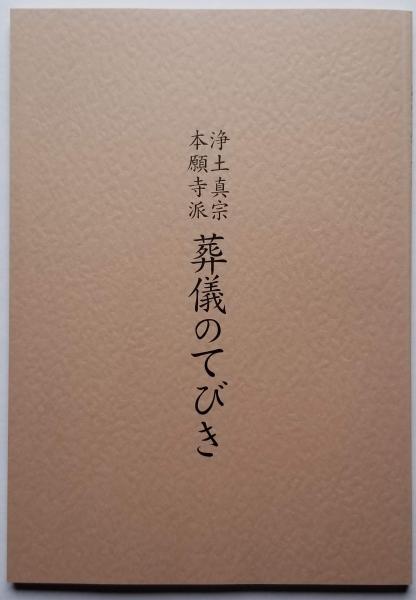 浄土真宗
本願寺派
葬儀のてびき